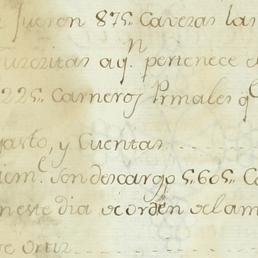 fueron 875 Caveras las
aq.n pertenece
225 Carneros Primales q
gasto, y Cuentas
son descargo 5605 Ca
en este dia de orden de la m
Ortiz